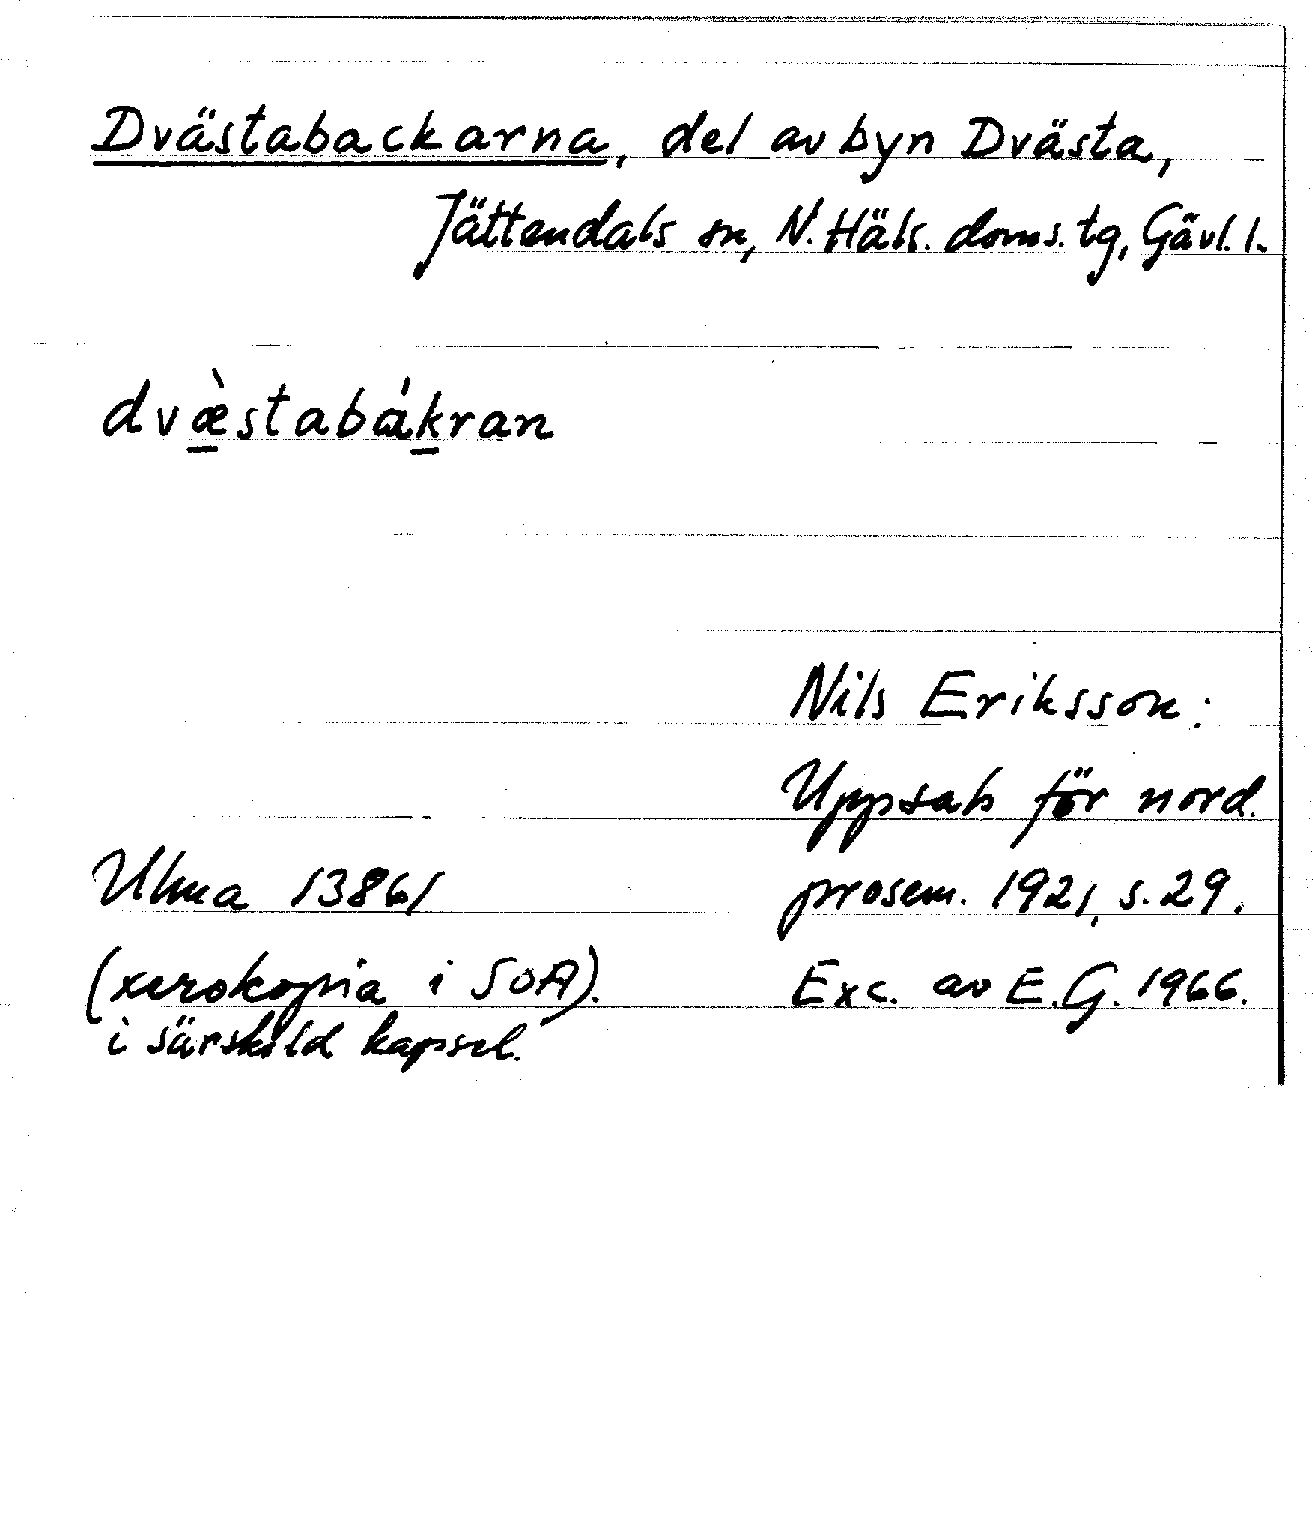 Dvästabackarna, del av byn Dvästa,
Jättendals sn, N. Häls. doms. tg, Gävl. l.
dvæ̱̀stabáḵran
Nils Eriksson:
Uppsats för nord.
prosem. 1921, s. 29.
Exc. av E.G. 1966.
Ulma 13861
(xerokopia i SOA).
i särskild kapsel.